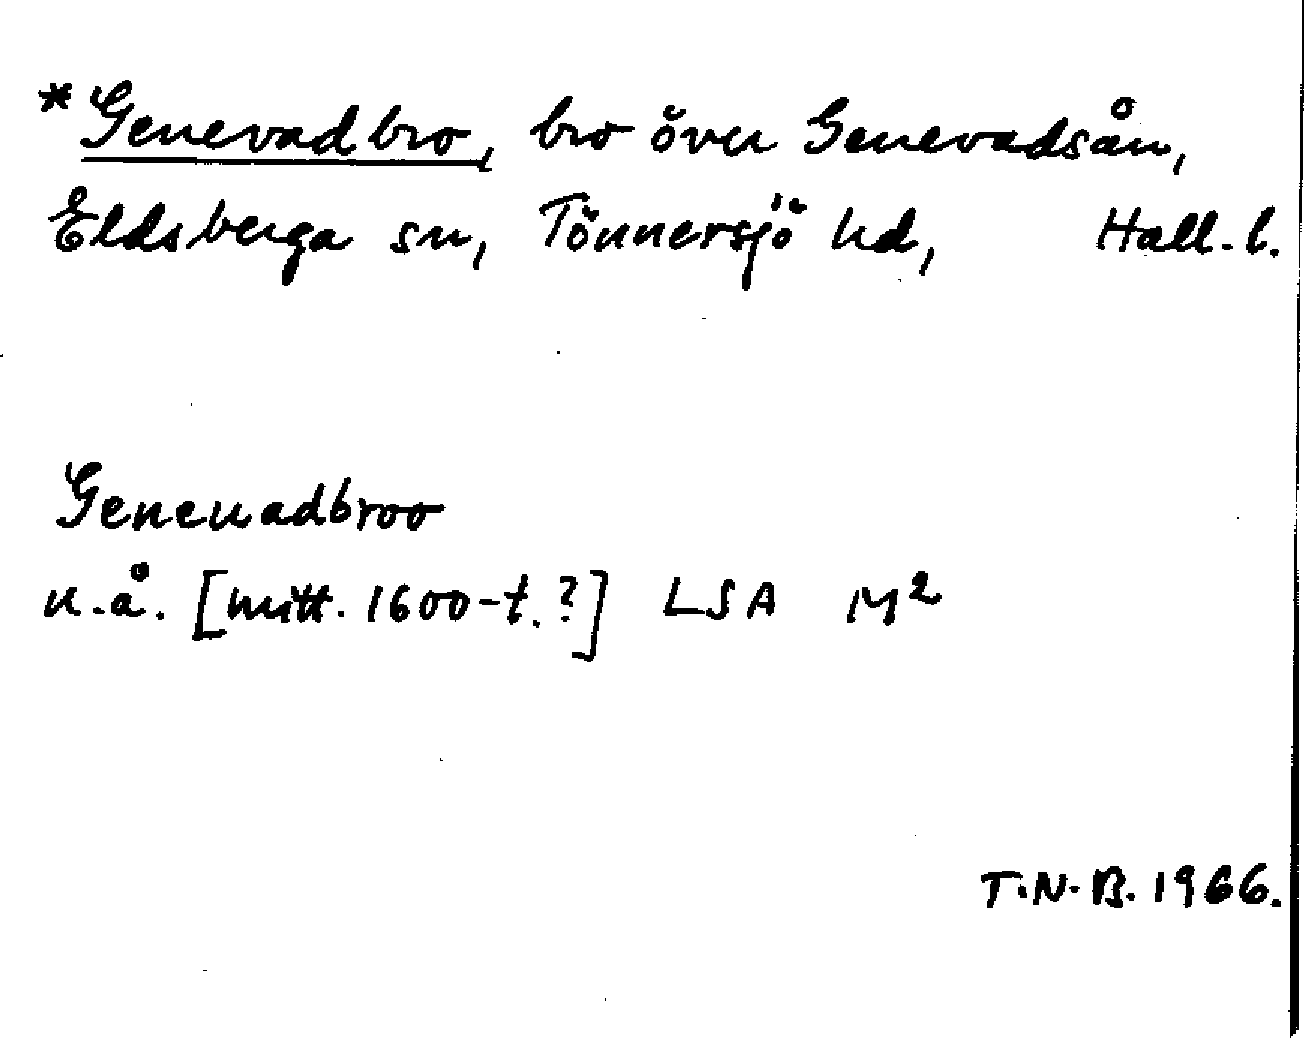 *Genevadbro, bro över Genevadsån,
Eldsberga sn, Tönnersjö hd, Hall. l.
Geneuadbroo
u.å. [mitt. 1600-t.?] LSA M²
T.N.B. 1966.